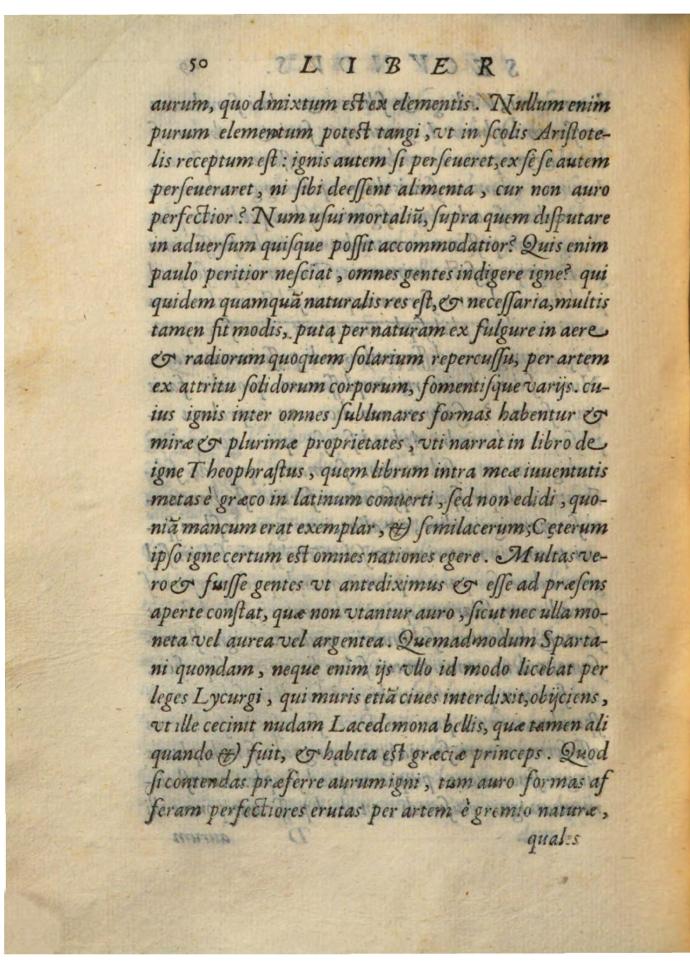 50 LIBER
aurum, quod mixtum est ex elementis. Nullum enim
purum elementum potest tangi, vt in scolis Aristote-
lis receptum est: ignis autem si perseueret, ex se se autem
perseueraret, ni sibi deessent alimenta, cur non auro
perfectior? Num usui mortaliũ, supra quem disputare
in aduersum quisque possit accommodatior? Quis enim
paulo peritior nesciat, omnes gentes indigere igne? qui
quidem quamquã naturalis res est, & necessaria, multis
tamen fit modis, puta per naturam ex fulgure in aere
& radiorum quoquem solarium repercussu, per artem
ex attritu solidorum corporum, fomentisque varijs. cu-
ius ignis inter omnes sublunares formas habentur &
miræ & plurimæ proprietates, vti narrat in libro de
igne Theophrastus, quem librum intra meæ iuuentutis
metas è græco in latinum conuerti, sed non edidi, quo-
niã mancum erat exemplar, & semilacerum; Ceterum
ipso igne certum est omnes nationes egere. Multas ve-
ro & fuisse gentes vt antediximus & esse ad præsens
aperte constat, quæ non vtantur auro, sicut nec ulla mo-
neta vel aurea vel argentea. Quemadmodum Sparta-
ni quondam, neque enim ijs vllo id modo licebat per
leges Lycurgi, qui muris etiã ciues interdixit, obijciens,
vt ille cecinit nudam Lacedemona bellis, quæ tamen ali
quando & fuit, & habita est græciæ princeps. Quod
si contendas præferre aurum igni, tum auro formas af
feram perfectiores erutas per artem è gremio naturæ,
quales